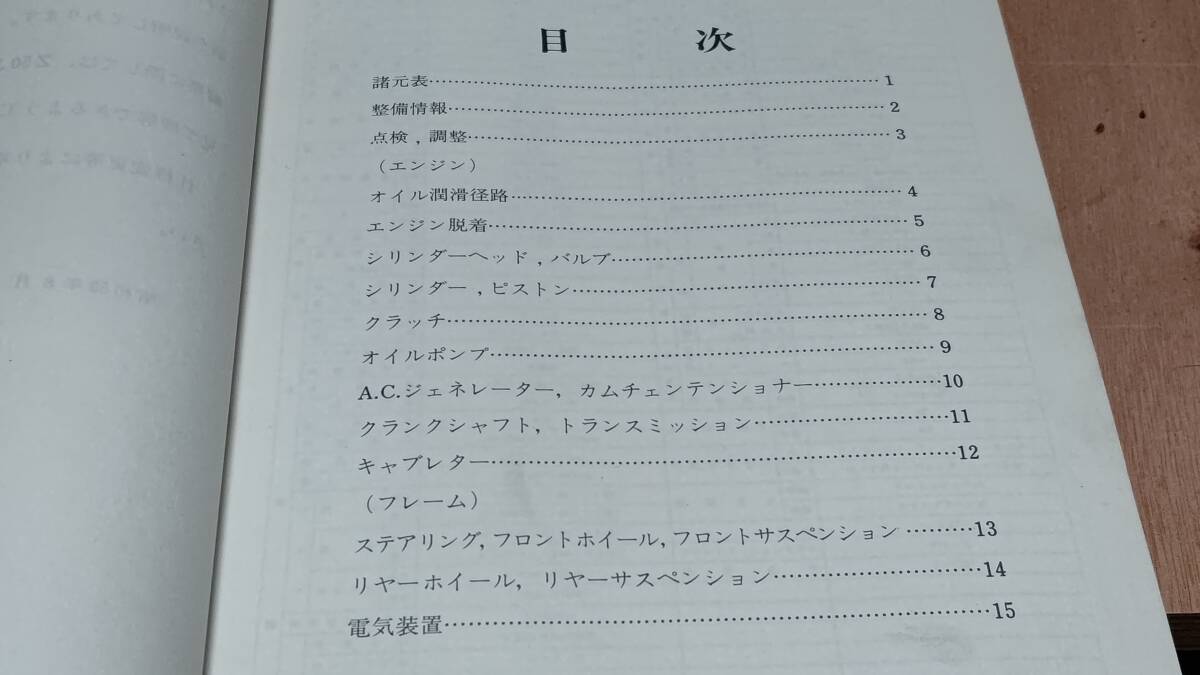 目 次
諸元表……………………………………………………1
整備情報…………………………………………………2
点検,調整………………………………………………3
(エンジン)
オイル潤滑径路…………………………………………4
エンジン脱着……………………………………………5
シリンダーヘッド,バルブ……………………………6
シリンダー,ピストン…………………………………7
クラッチ…………………………………………………8
オイルポンプ……………………………………………9
A.C.ジェネレーター, カムチェンテンショナー………………10
クランクシャフト, トランスミッション……………………11
キャブレター……………………………………………………12
(フレーム)
ステアリング,フロントホイール,フロントサスペンション ………13
リヤーホイール, リヤーサスペンション………………………14
電気装置…………………………………………………………15